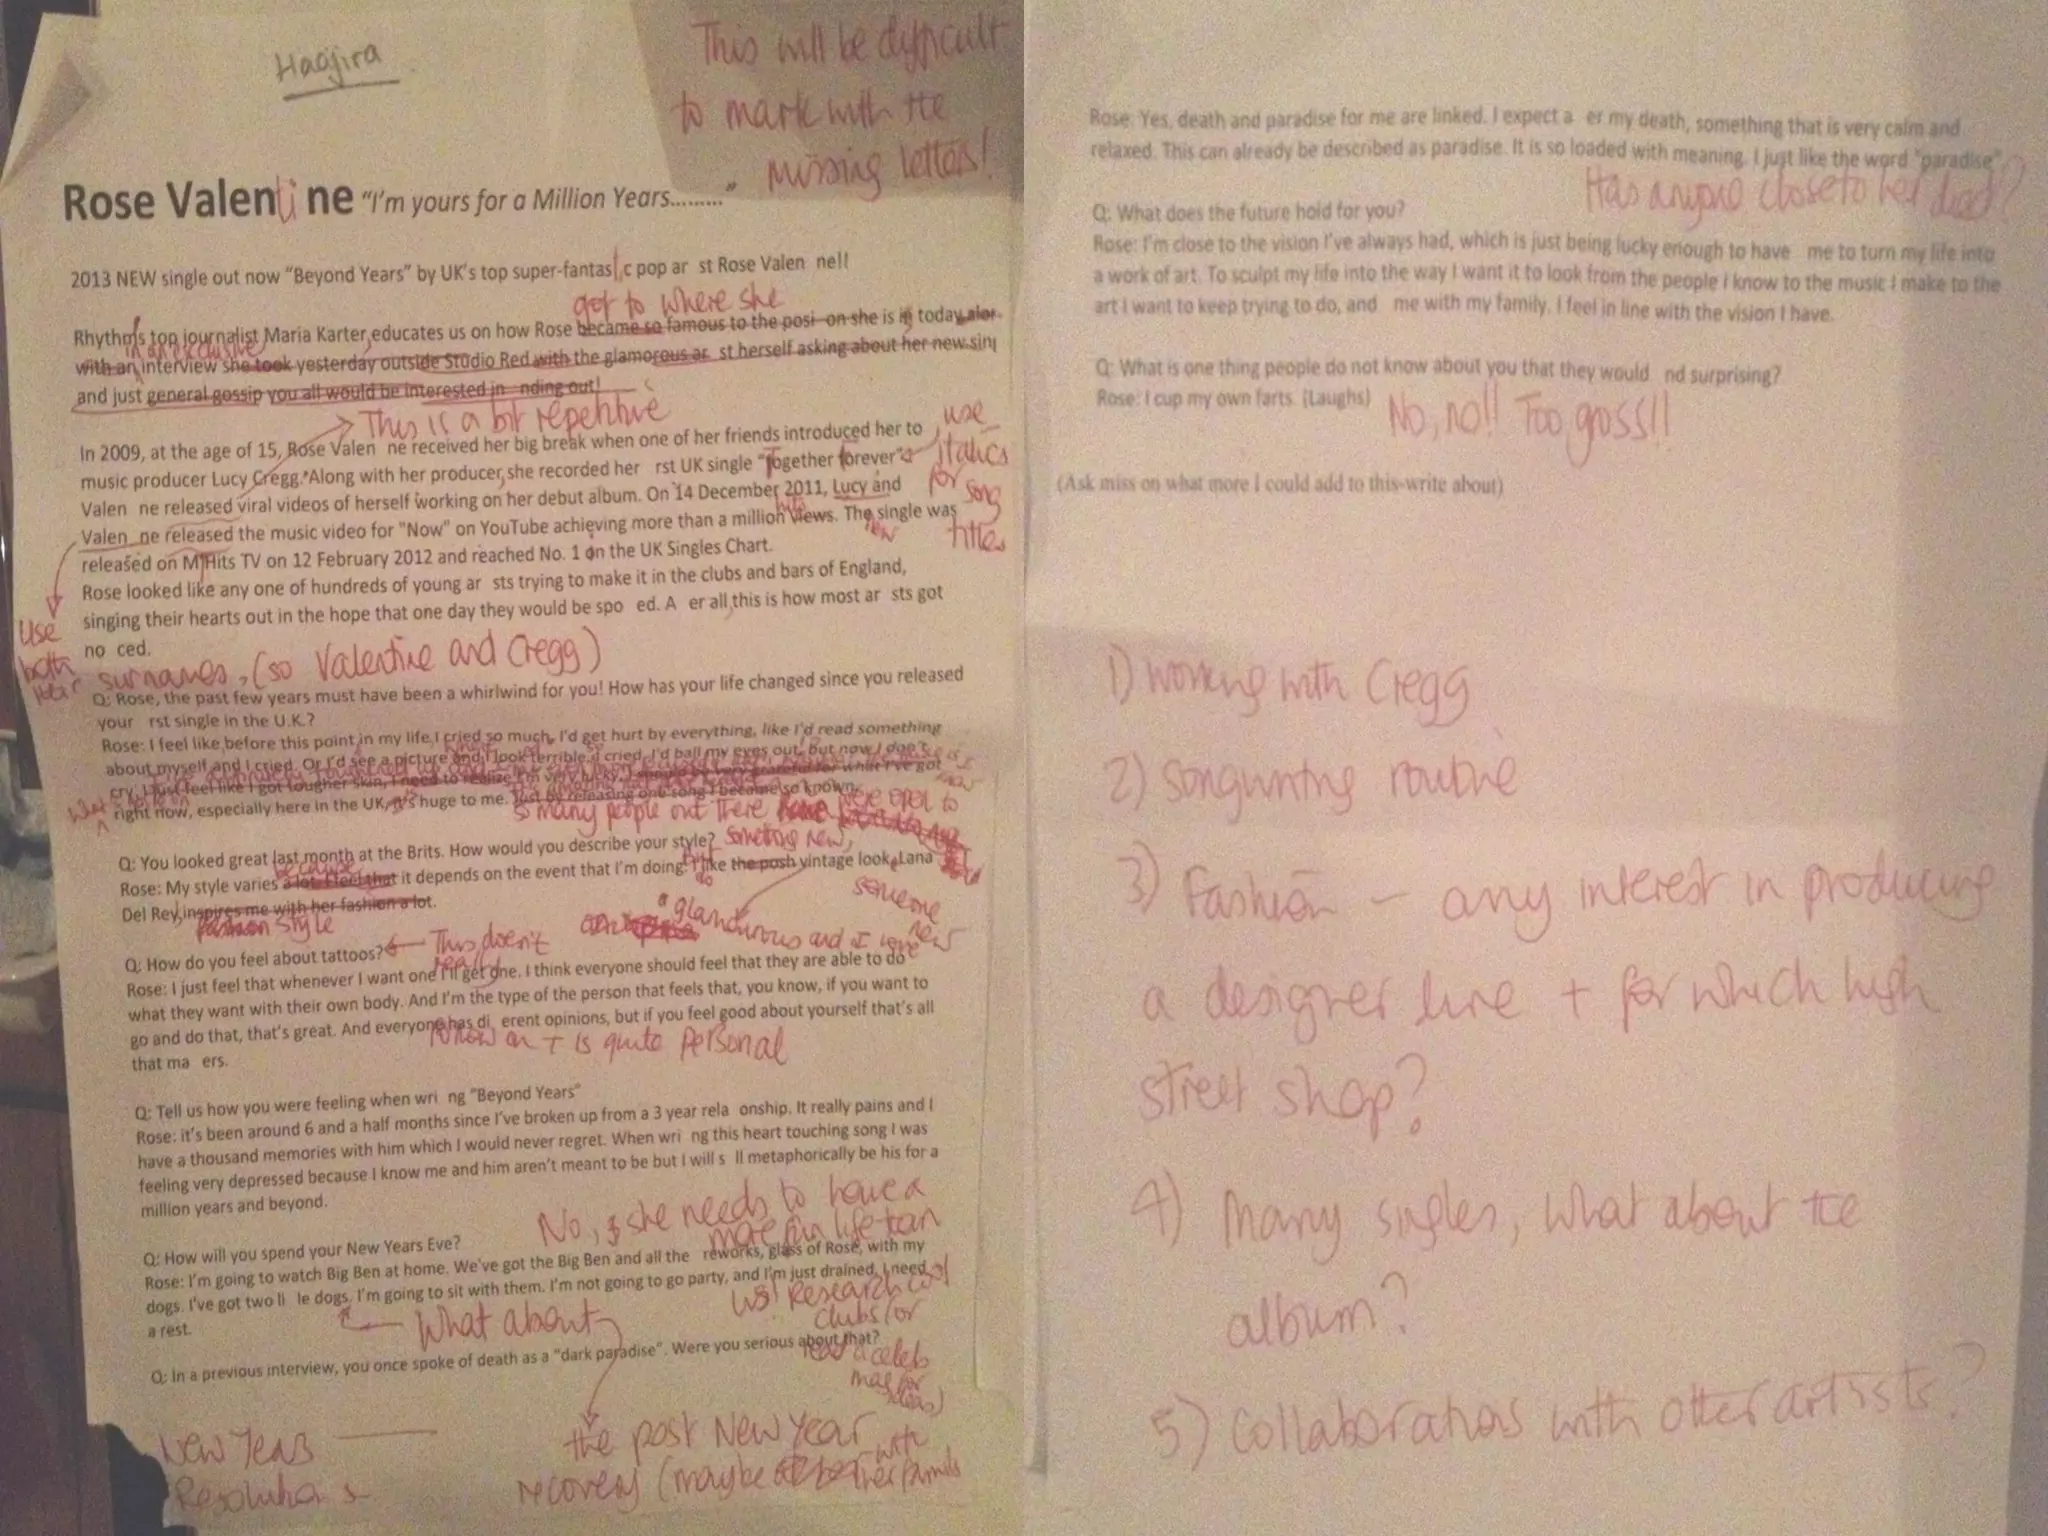 Haajira
This will be difficult
to mark with the
missing letters!
Rose Valentine "I'm yours for a Million Years........."
2013 NEW single out now "Beyond Years" by UK's top super-fantas c pop ar st Rose Valen ne!!
got to where she
Rhythms top journalist Maria Karter educates us on how Rose became so famous to the posi on she is in today
in an exclusive
with an interview she took yesterday outside Studio Red with the glamorous ar st herself asking about her new
and just general gossip you all would be interested in nding out!
This is a bit repetitive
In 2009, at the age of 15, Rose Valen ne received her big break when one of her friends introduced her to
music producer Lucy Cregg. Along with her producer, she recorded her rst UK single "Together forever"
Valen ne released viral videos of herself working on her debut album. On 14 December 2011, Lucy and
Valen ne released the music video for "Now" on YouTube achieving more than a million views. The single was
hits
new
released on M Hits TV on 12 February 2012 and reached No. 1 on the UK Singles Chart.
use
italics
for
song
titles
Rose looked like any one of hundreds of young ar sts trying to make it in the clubs and bars of England,
singing their hearts out in the hope that one day they would be spo ed. A er all, this is how most ar sts got
no ced.
Use
both
their surnames, (so Valentine and Cregg)
Q: Rose, the past few years must have been a whirlwind for you! How has your life changed since you released
your rst single in the U.K.?
Rose: I feel like before this point in my life, I cried so much, I'd get hurt by everything, like I'd read something
about myself and I cried. Or I'd see a picture and I look terrible, I cried, I'd ball my eyes out. But now I don't
cry. I just feel like I got tougher skin, I need to realize I'm very lucky, I should be very grateful for what I've got
right now, especially here in the UK, it's huge to me. Just by releasing one song I became so known.
so many people out there were open to
something new,
someone
new
Q: You looked great last month at the Brits. How would you describe your style?
because
Rose: My style varies a lot. I feel that it depends on the event that I'm doing. I like the posh vintage look, Lana
Del Rey inspires me with her fashion a lot.
style
glamourous and I love
Q: How do you feel about tattoos?
This doesn't
really
Rose: I just feel that whenever I want one I'll get one. I think everyone should feel that they are able to do
what they want with their own body. And I'm the type of the person that feels that, you know, if you want to
go and do that, that's great. And everyone has di erent opinions, but if you feel good about yourself that's all
follow on + is quite personal
that ma ers.
Q: Tell us how you were feeling when wri ng "Beyond Years"
Rose: it's been around 6 and a half months since I've broken up from a 3 year rela onship. It really pains and I
have a thousand memories with him which I would never regret. When wri ng this heart touching song I was
feeling very depressed because I know me and him aren't meant to be but I will s ll metaphorically be his for a
million years and beyond.
No, she needs to have a
more fun life than
us! Research cool
clubs (or
read a celeb
mag for
ideas)
Q: How will you spend your New Years Eve?
Rose: I'm going to watch Big Ben at home. We've got the Big Ben and all the reworks, glass of Rosé, with my
dogs. I've got two li le dogs. I'm going to sit with them. I'm not going to go party, and I'm just drained, I need
a rest.
What about
Q: In a previous interview, you once spoke of death as a "dark paradise". Were you serious about that?
New Years
Resolutions
the post New Year
recovery (maybe with
her family
Rose: Yes, death and paradise for me are linked. I expect a er my death, something that is very calm and
relaxed. This can already be described as paradise. It is so loaded with meaning. I just like the word "paradise".
Has anyone close to her died?
Q: What does the future hold for you?
Rose: I'm close to the vision I've always had, which is just being lucky enough to have me to turn my life into
a work of art. To sculpt my life into the way I want it to look from the people I know to the music I make to the
art I want to keep trying to do, and me with my family. I feel in line with the vision I have.
Q: What is one thing people do not know about you that they would nd surprising?
Rose: I cup my own farts. (Laughs)
No, no!! Too gross!!
(Ask miss on what more I could add to this-write about)
1) Working with Cregg
2) Songwriting routine
3) Fashion - any interest in producing
a designer line + for which high
street shop?
4) Many singles, what about the
album?
5) Collaborations with other artists?